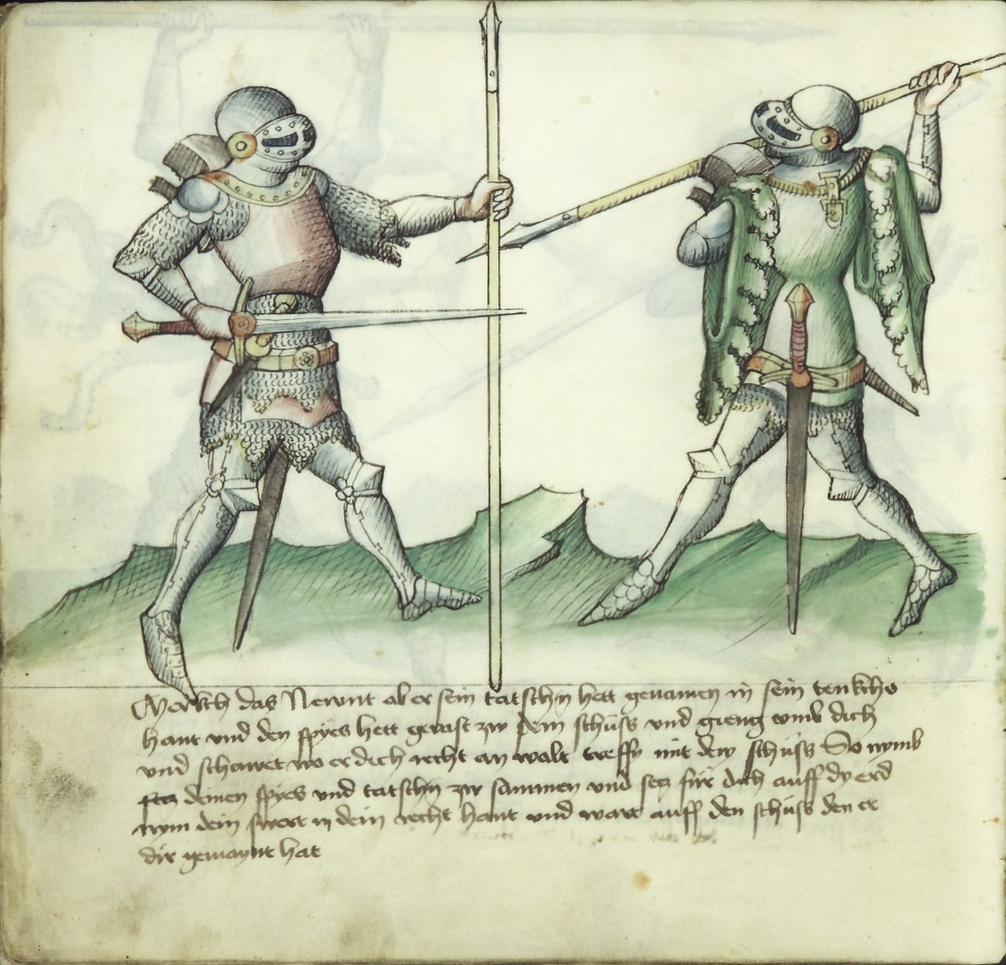 Merkch das Newnt ob er sein tatschn hett genamen in sein tenckhe
hant und den spyes hett gevast zw dem schuss und gieng umb dich
und schawet wo er dich recht an wolt treffn mit dem schuss So nymb
deinen spyes und tatschn zw sammen und setz für dich auff dy erd
nym dein swert in dein recht hant und wart auff den schuss den er
dir gemaynt hat